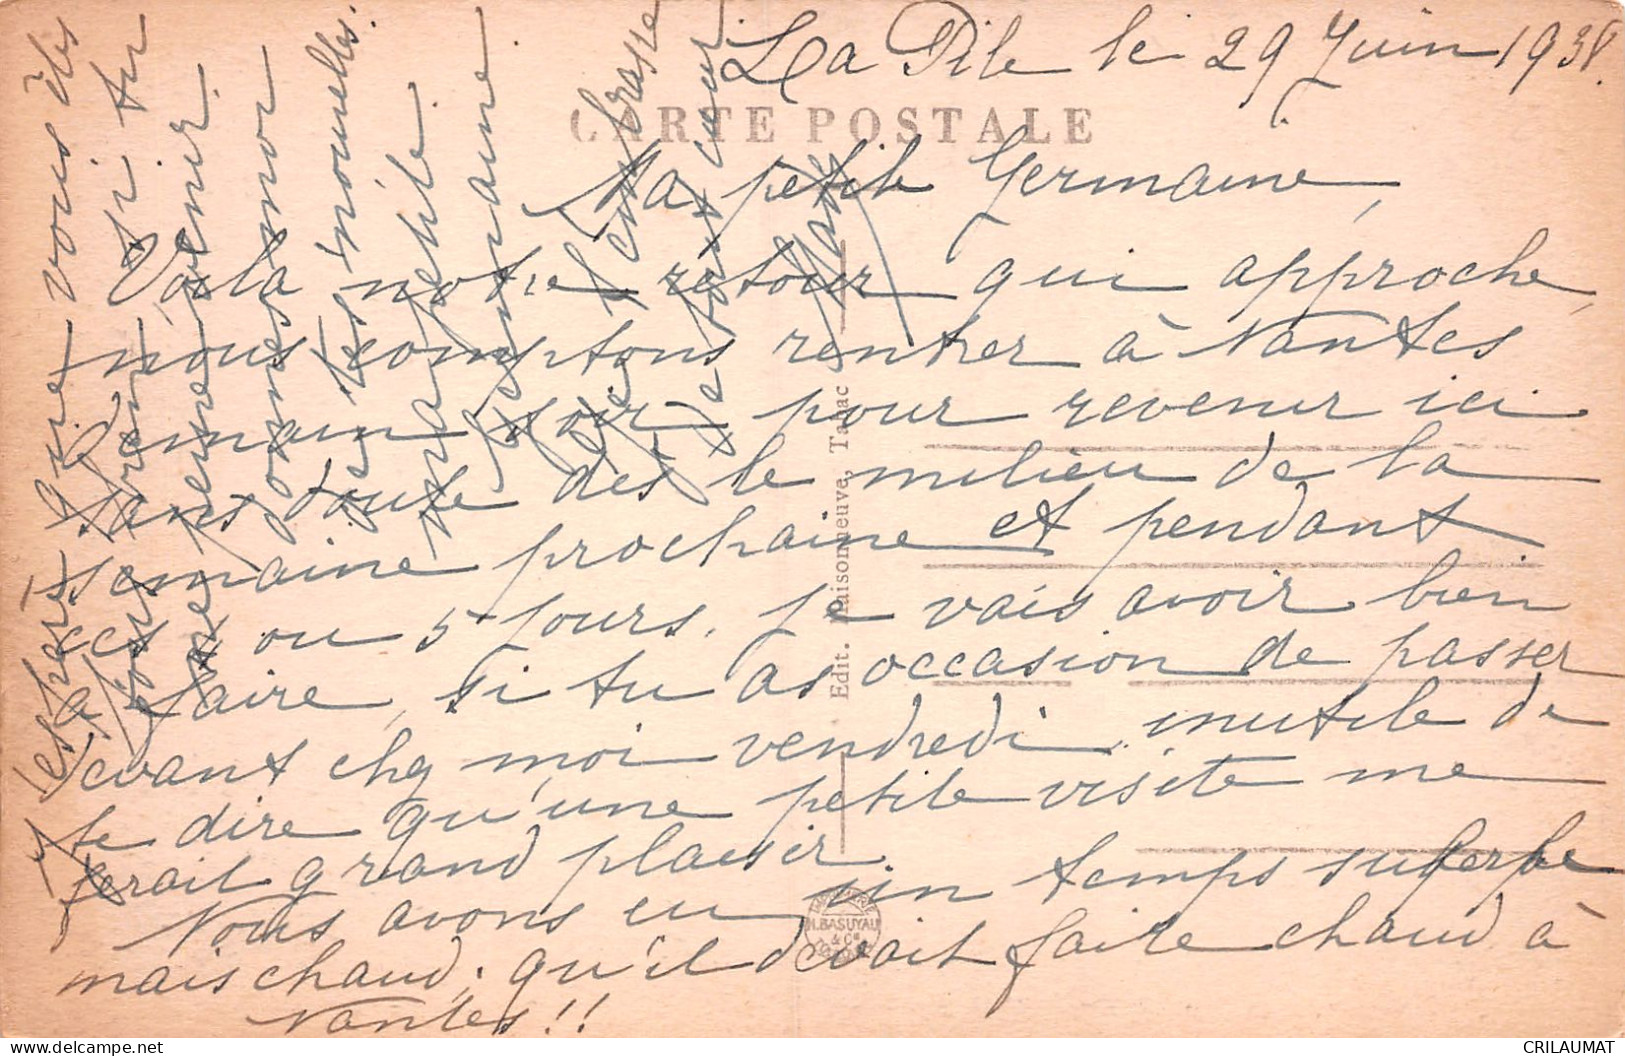 La Pile le 29 Juin 193
CARTE POSTALE
Ma petite Germaine,
Voila notre retour qui approche,
nous comptons rentrer à Nantes
demain soir pour revenir ici
sans doute dès le milieu de la
semaine prochaine et pendant
ces 4 ou 5 jours, je vais avoir bien
à faire, si tu as occasion de passer
devant chez moi vendredi inutile de
te dire qu'une petite visite me
ferait grand plaisir.
Nous avons eu un temps superbe
mais chaud, qu'il devait faire chaud à
Nantes!!
J'espère que vous êtes
si tu
venir
donnes moi
de tes nouvelles.
ma petite
Germaine
je t'embrasse
de tout cœur
Edit. Maisonneuve, Tarnac
IMPRIMERIE
H. BASUYAU
& Cie
TOULOUSE
CRILAUMAT